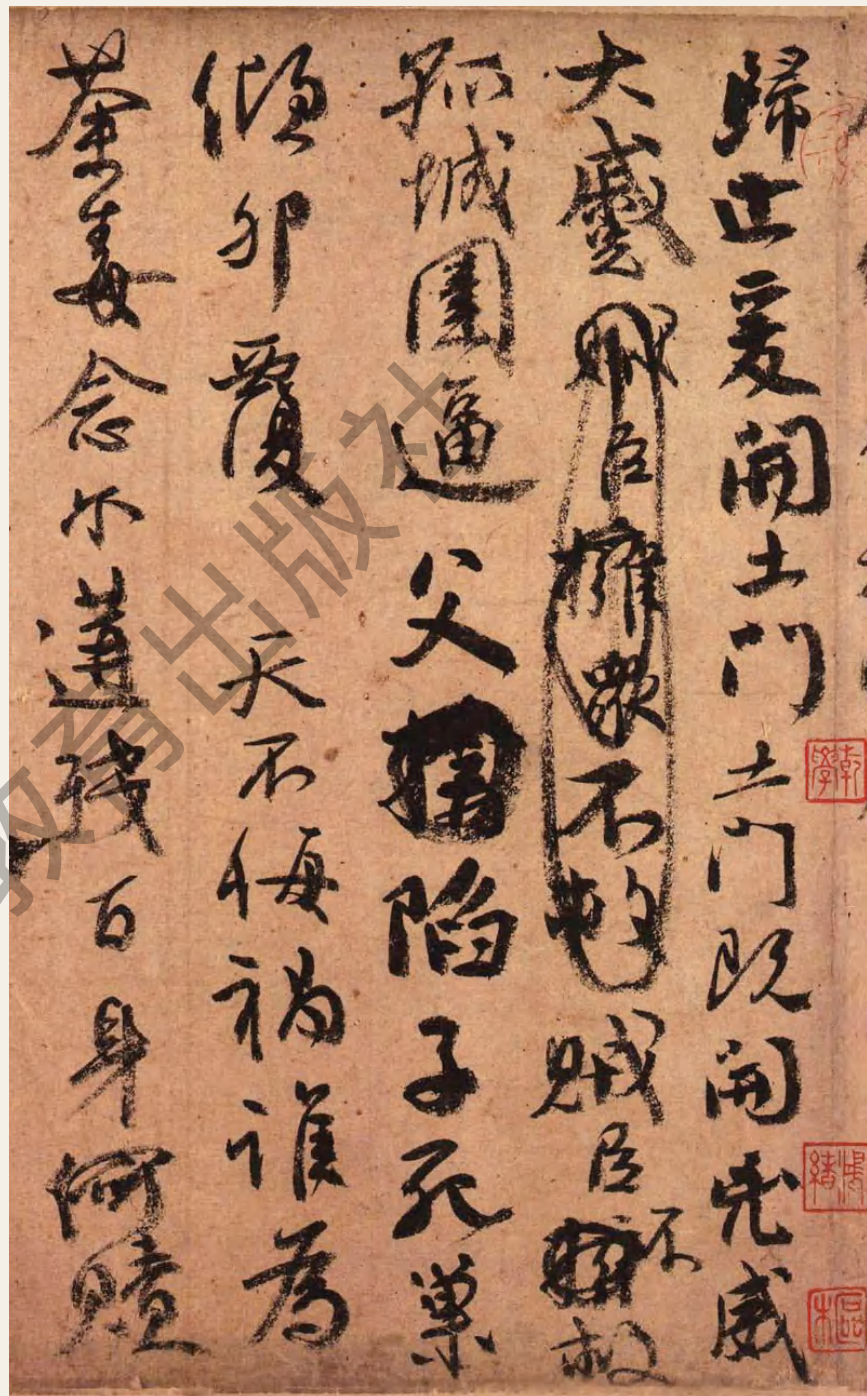 歸止爰開土門土門既開兇威
大蹙賊臣擁衆不救賊臣不救
孤城圍逼父陷子死巢
傾卵覆 天不悔禍誰為
荼毒念尔遘殘百身何贖
乾學
教育出版社